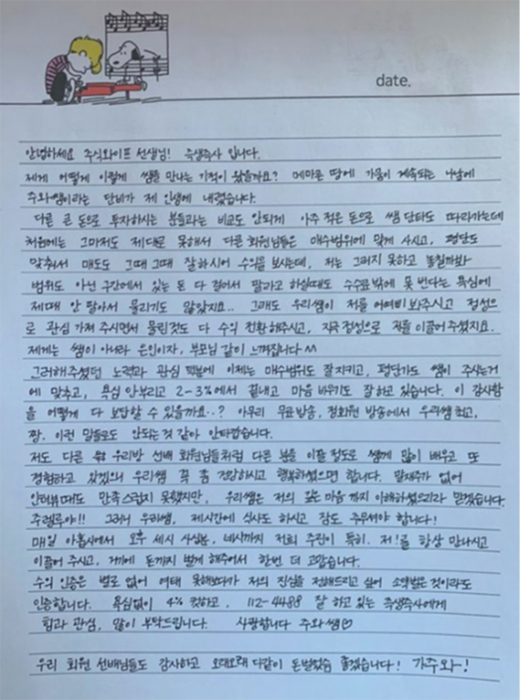 date.
안녕하세요 주식와이프 선생님! 즉생즉사 입니다.
제게 어떻게 이렇게 쌤을 만나는 기적이 왔을까요? 메마른 땅에 가뭄이 계속되는 나날에
주와쌤이라는 단비가 제 인생에 내렸습니다.
다른 큰 돈으로 투자하시는 분들과는 비교도 안되게 아주 적은 돈으로 쌤 단타도 따라가는데
처음에는 그마저도 제대로 못해서 다른 회원님들은 매수범위에 맞게 사시고, 평단도
맞춰서 매도도 그때 그때 잘하시어 수익을 보시는데, 저는 그러지 못하고 놓칠까봐
범위도 아닌 구간에서 있는 돈 다 걸어서 팔라고 하실때도 수수료밖에 못 번다는 욕심에
제때 안 팔아서 물리기도 많았지요.. 그래도 우리쌤이 저를 어여삐 봐주시고 정성으
로 관심 가져 주시면서 물린것도 다 수익 전환해주시고, 지극정성으로 저를 이끌어 주셨지요.
제게는 쌤이 아니라 은인이자, 부모님 같이 느껴집니다 ^^
그러해주셨던 노력과 관심 덕분에 이제는 매수범위도 잘 지키고, 평단가도 쌤이 주시는거
에 맞추고, 욕심 안부리고 2-3%에서 끝내고 마음 비우기도 잘 하고 있습니다. 이 감사함
을 어떻게 다 보답할 수 있을까요..? 아무리 무료방송, 정회원 방송에서 우리쌤 최고,
짱, 이런 말들로도 안되는 것 같아 안타깝습니다.
저도 다른 우리방 선배 회원님들처럼 다른 분을 이끌 정도로 쌤께 많이 배우고 또
경험하고 있겠으니 우리쌤 꼭 좀 건강하시고 행복하셨으면 합니다. 말재주가 없어
인터뷰때도 만족스럽지 못했지만, 우리쌤은 저의 깊은 마음까지 이해하셨으리라 믿겠습니다.
주렐루야!! 그러니 우리쌤, 제시간에 식사도 하시고 잠도 주무셔야 합니다!
매일 아홉시에서 오후 세시 사십분, 네시까지 저희 주린이 특히, 저!를 항상 만나시고
이끌어 주시고, 거기에 돈까지 벌게 해주어서 한번 더 고맙습니다.
수익 인증은 별로 없어 여태 못해왔다가 저의 진심을 전해드리고 싶어 소액벌은 것이라도
인증합니다. 욕심없이 4% 컷하고, 112-4488 잘 하고 있는 즉생즉사에게
힘과 관심, 많이 부탁드립니다. 사랑합니다 주와쌤♡
우리 회원 선배님들도 감사하고 오래오래 다같이 돈벌었음 좋겠습니다! 가주와!